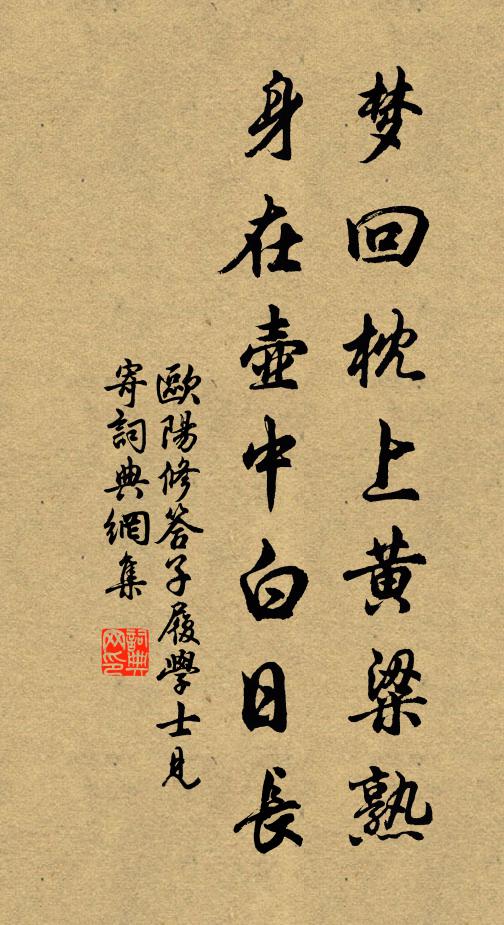 梦回枕上黄粱熟
身在壺中白日長
歐陽修答子履學士見
寄詞典網集
詞典网印